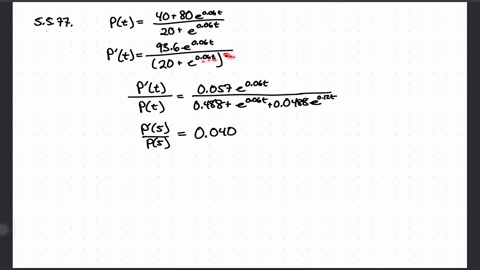 5.5.77. P(t) = (40 + 80e^{0.06t}) / (20 + e^{0.06t})
P'(t) = 93.6e^{0.06t} / (20 + e^{0.06t})^2
P'(t) / P(t) = 0.057e^{0.06t} / (0.488 + e^{0.06t} + 0.0488e^{0.12t})
P'(5) / P(5) = 0.040